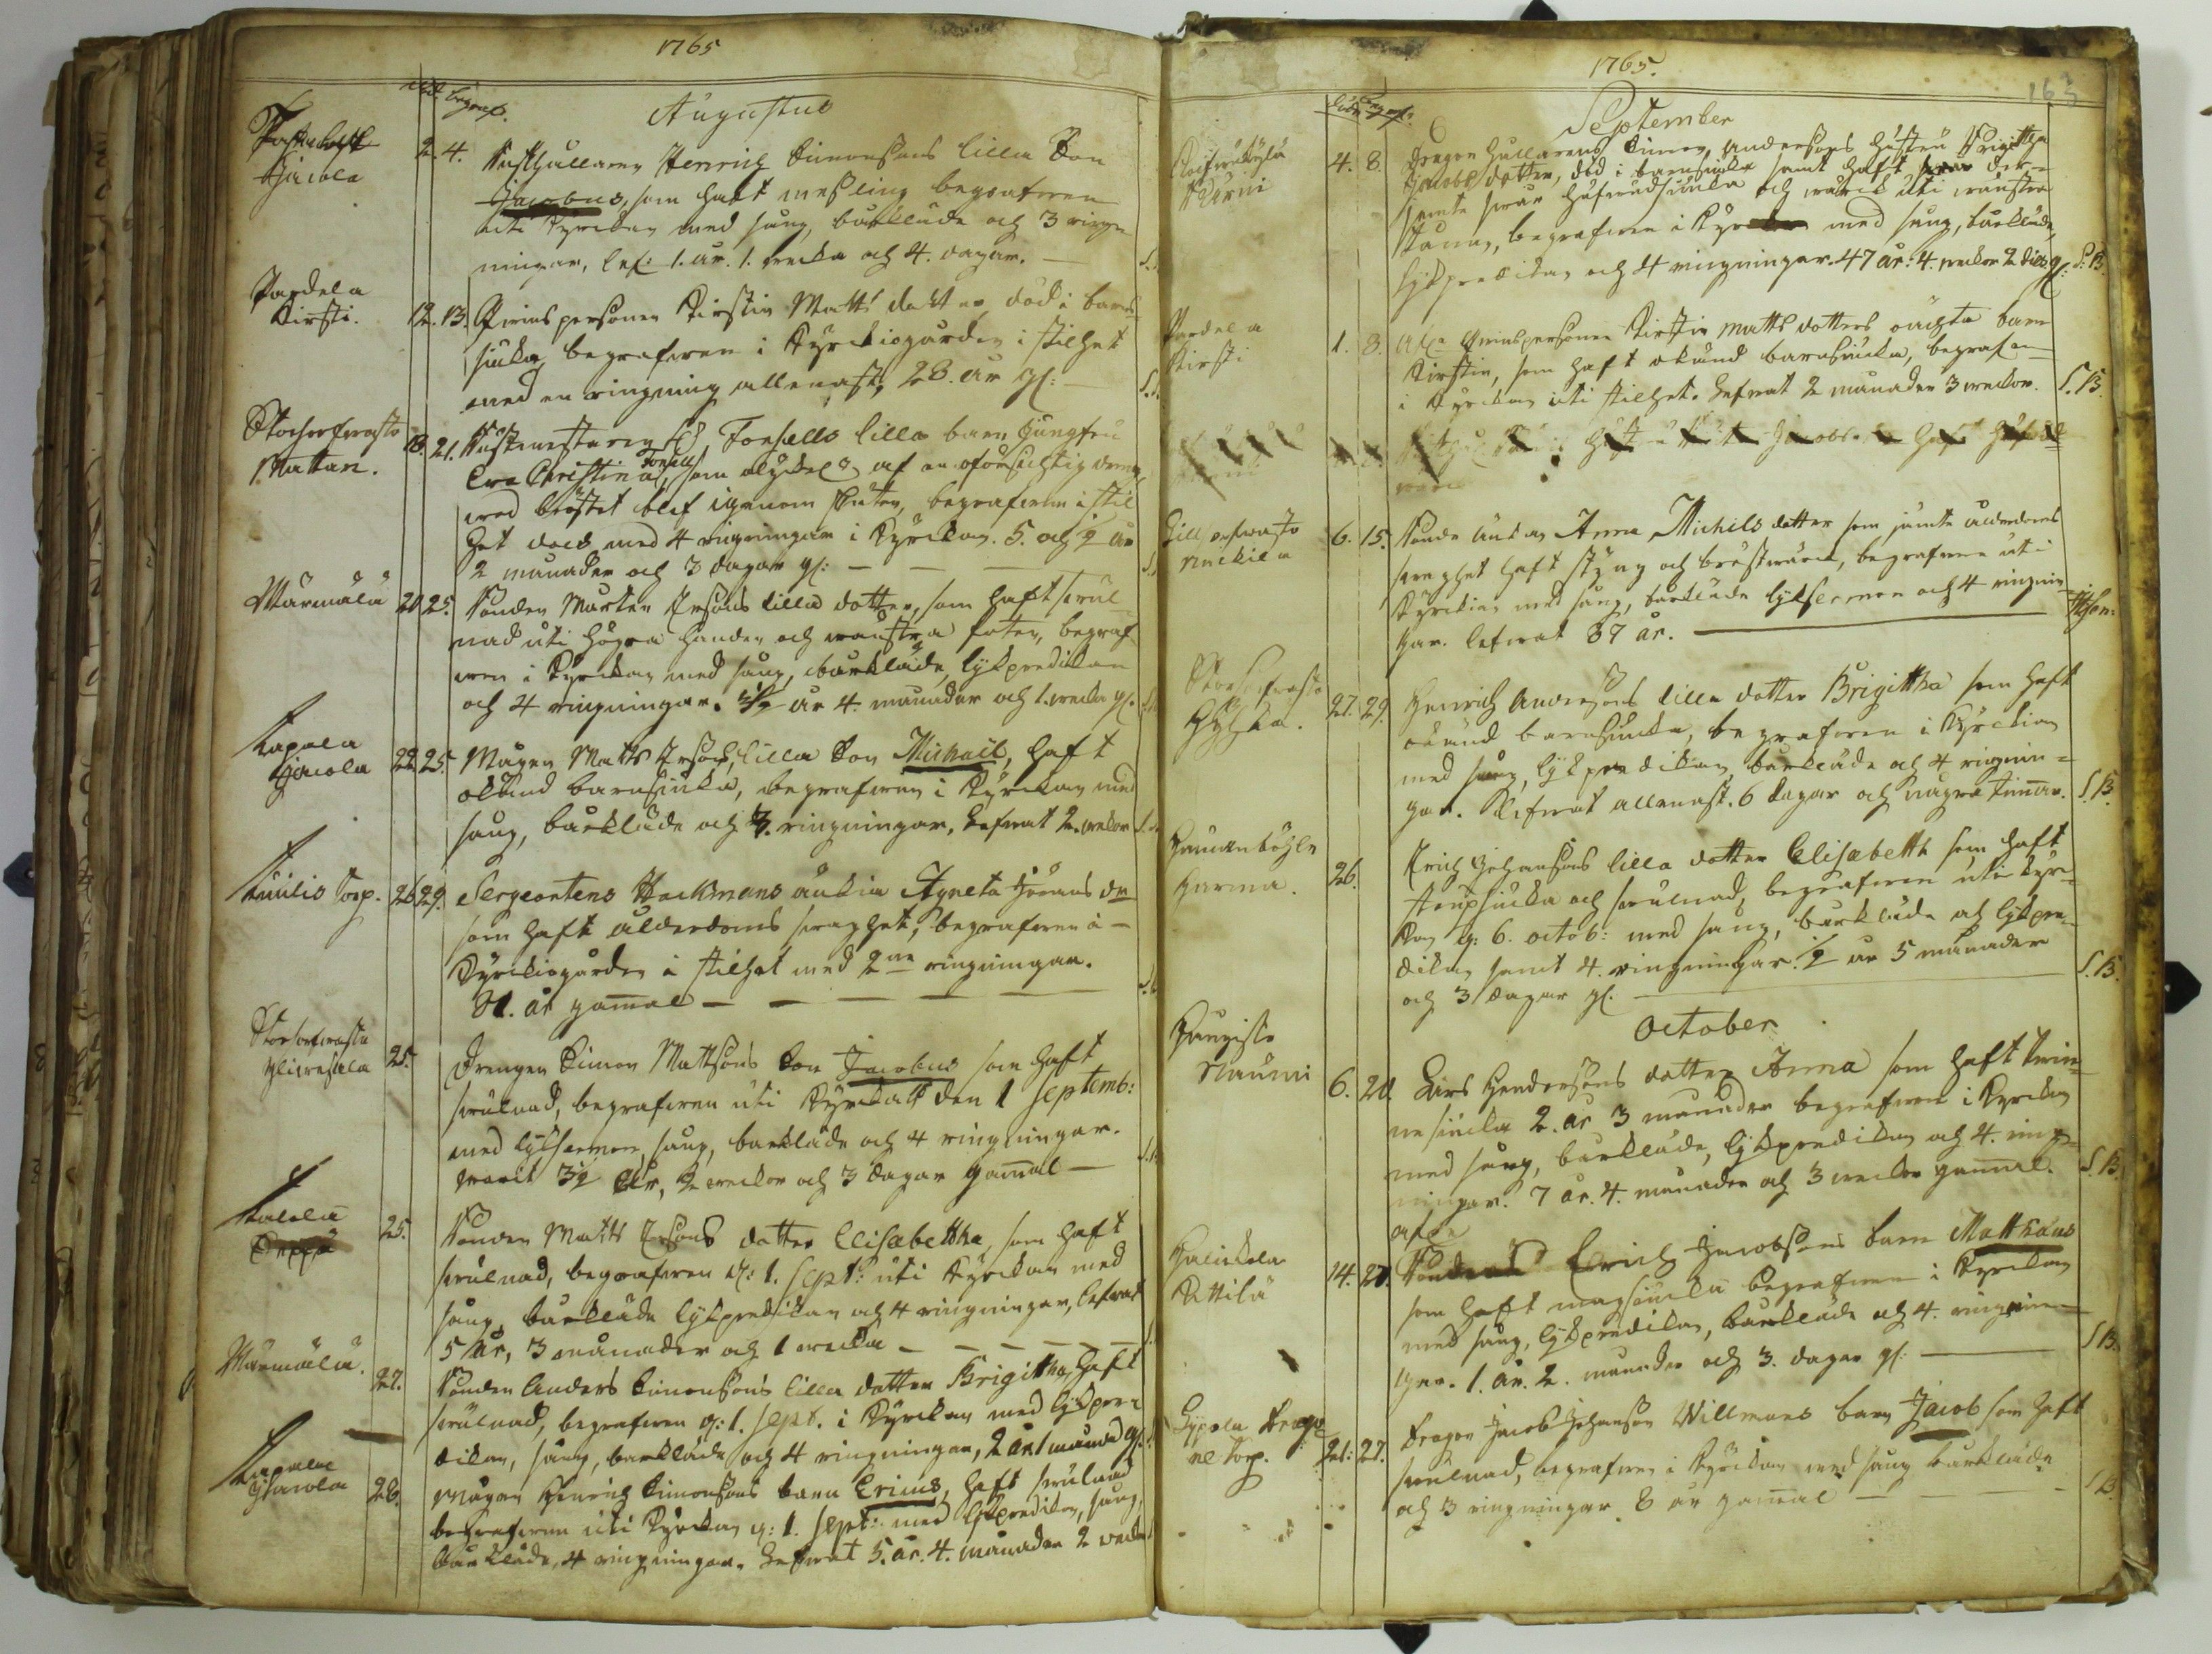 1765
död. begraf.
Augustus
Jacola
2. 4. Rusthållaren Henrich Simonsons lilla Son
Jacobus, som haft meßling begrafven
uti Kyrckan med sång, bårkläde och 3 ringn
ningar, lef: 1. år. 1. wecka och 4. dagar.
Pardela
Kirsti.
12. 13. Qwinspersonen Kirstin Matts dotter död i barn
siuka begrafven i Kyrckiogården i stilhet
med en ringning allenast, 28. år gl:
Storsorfwasto
Mattan.
18. 21. Rustmästaren Forsells lilla barn Jungfru
Eva Christina Forsell, som olyckel: af en oförsichtig dreng
wid bröstet blef igenom skuten, begrafven i stil
het doch med 4 ringningar i Kyrckan. 5. och ½ år
2 månader och 3 dagar gl:
Märmälä
20. 25. Bonden Mårten Ersons lilla dotter, som haft swul
nad uti högra handen och wänstra foten, begraf
wen i Kyrckan med sång, bårkläde, lykpredikan
och 4 ringningar. ½ år 4. månader och 1. wecka gl.
Lapala
Jacola
22. 25. Mågen Matts Ersons, lilla Son Michaël, haft
okänd barnsiuka, begrafven i Kyrckan med
sång, bårkläde och 3. ringningar, Lefwat 2. weckor
Torp.
26. 29. Sergeantens Hackmans änkia Agneta Görans dr
som haft ålderdoms swaghet, begrafven i
Kyrckiogården i stilhet med 2ne ringningar.
81. år gamal
Storsorfwasto
25. Drengen Simon Mattsons Son Jacobus som haft
swulnad, begrafven uti Kyrckan den 1 septemb:
med lyksermon, sång, bårkläde och 4 ringningar.
warit 3½ År, 2 weckor och 3 dagar gamal
25. Bonden Matts Ersons dotter Elisabetha som haft
swulnad, begrafven d: 1. sept: uti Kyrckan med
sång, bårkläde lykpredikan och 4 ringningar, lefwat
5 År, 3 månader och 1 wecka
Märmälä.
27. Bonden Anders Simonsons lilla dotter Brigittha, haft
swulnad, begrafven d: 1. sept. i Kyrckan med lykpre
dikan, sång, bårkläde och 4 ringningar, 2 år 1 månad gl:
Lapala
Jacola
28. Mågen Henrich Simonsons barn Ericus, haft swulnad
begrafven uti Kyrckan d: 1. sept: med lykpredikan, sång,
bårkläde, 4 ringningar. Lefwat 5. år. 4. månader 2 weckor
1765.
163
död. begraf.
September
4. 8. Dragon hållarens Simon Andersons hustru Brigittha
Jacobs dotter, död i barnsiuka samt haft
jemte swår hufwudsiuka och wärk uti wänstra
begrafven i Kyrckan med sång, bårkläde,
lykpredikan och 4 ringningar. 47 år. 4. weckor 2 dag: gl: S. B.
Pardela
Kirsti
1. 8. Afl: Qwinspersonen Kirstin Matts dotters oächta barn
Kirstin, som haft okänd barnsiuka, begrafven
i Kyrckan uti stilhet. Lefwat 2 månader 3 weckor. S. B.
6. 15. Bonde änkan Anna Michels dotter som jämte ålderdoms
swaghet haft styng och bröstwärck, begrafven uti
Kyrckian med sång, bårkläde lyksermon och 4 ringnin
gar. lefwat 87 år.
27. 29. Henrich Andersons lilla dotter Brigittha som haft
okänd barnsiuka, begrafven i Kyrckian
med sång, lykpredikan, bårkläde och 4 ringnin=
gar. Lefwat allenast. 6 dagar och några timar. S. B.
26. Erich Johansons lilla dotter Elisabeth som haft
siuka och swulnad, begrafven uti Kyrc
kan d: 6. octob: med sång, bårkläde och lykpre
dikan samt 4. ringningar. ½ år 5 månader
och 3 dagar gl. S. B.
October
6. 20. Lars Hendersons dotter Anna som haft
siuka 2. år 3 månader begrafven i Kyrckan
med sång, bårkläde, lykpredikan och 4. ring
ningar. 7 år. 4. månader och 3 weckor gammal. S. B.
14. 20. Erich Jacobsons barn Matthæus
som haft magsiuka begrafven i Kyrckan
med sång, lykpredikan, bårkläde och 4. ringnin
gar. 1. år. 2. månader och 3. dagar gl: S B.
21. 27. Dragon Jacob Johanson Willmans barn Jacob som haft
swulnad, begrafven i Kyrckan med sång bårkläde
och 3 ringningar. 8 år gamal S B.